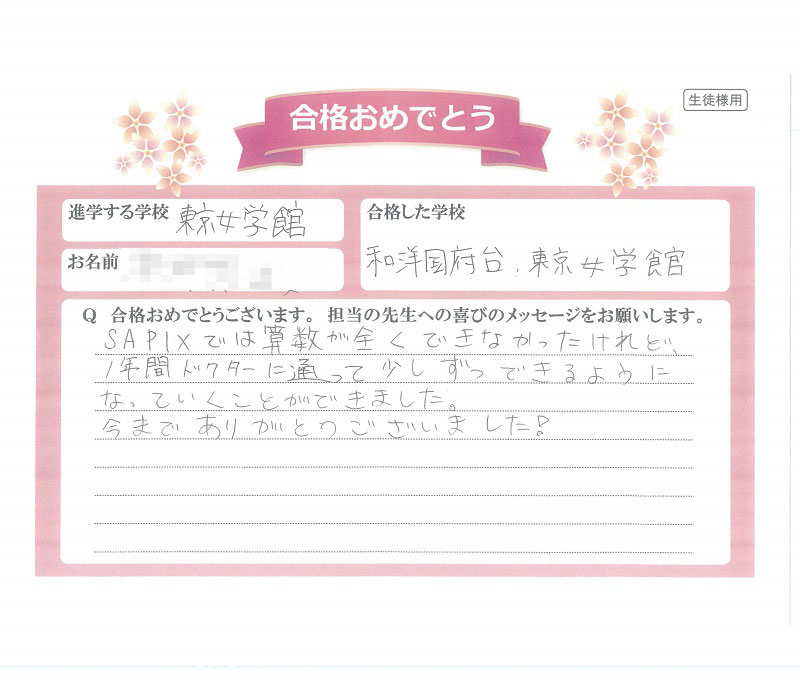 合格おめでとう
生徒様用
進学する学校 東京女学館
合格した学校
和洋国府台、東京女学館
お名前
Q 合格おめでとうございます。担当の先生への喜びのメッセージをお願いします。
SAPIXでは算数が全くできなかったけれど、
1年間ドクターに通って少しずつできるように
なっていくことができました。
今までありがとうございました!